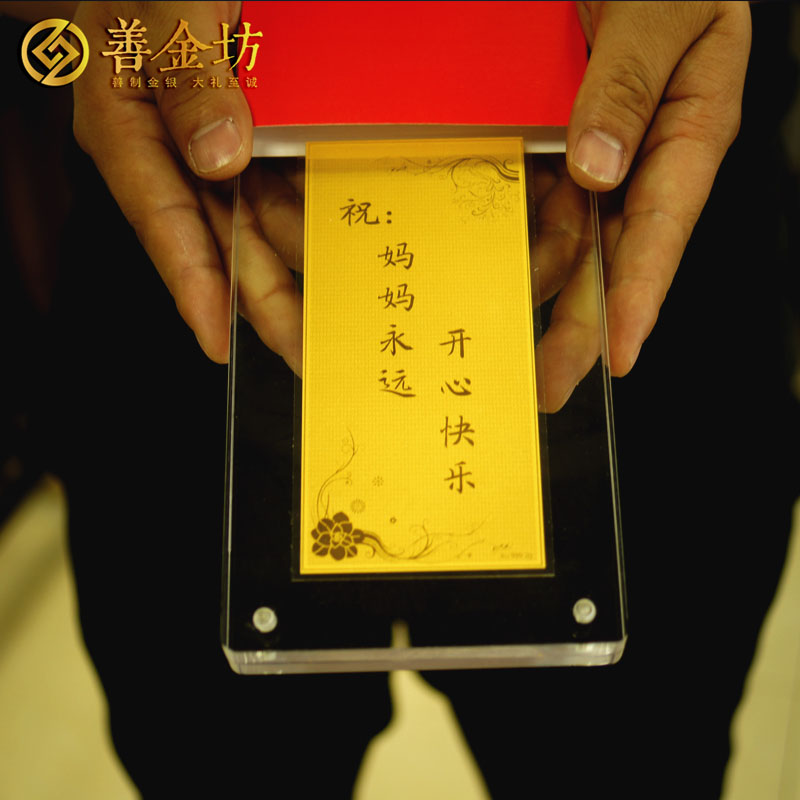 善金坊
善制金银 大礼至诚
祝:
妈妈永远
开心快乐